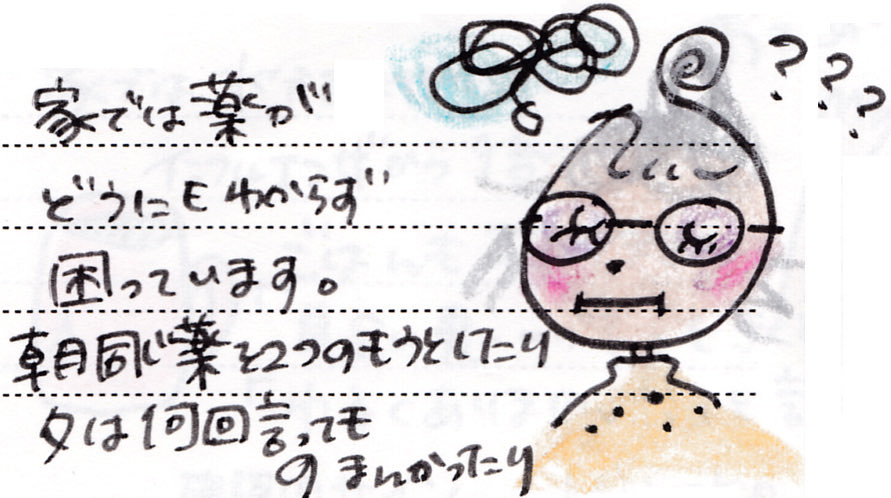 家では薬が
どうにもわからず
困っています。
朝同じ薬を2つのもうとしたり
夕は何回言っても
のまんかったり
???